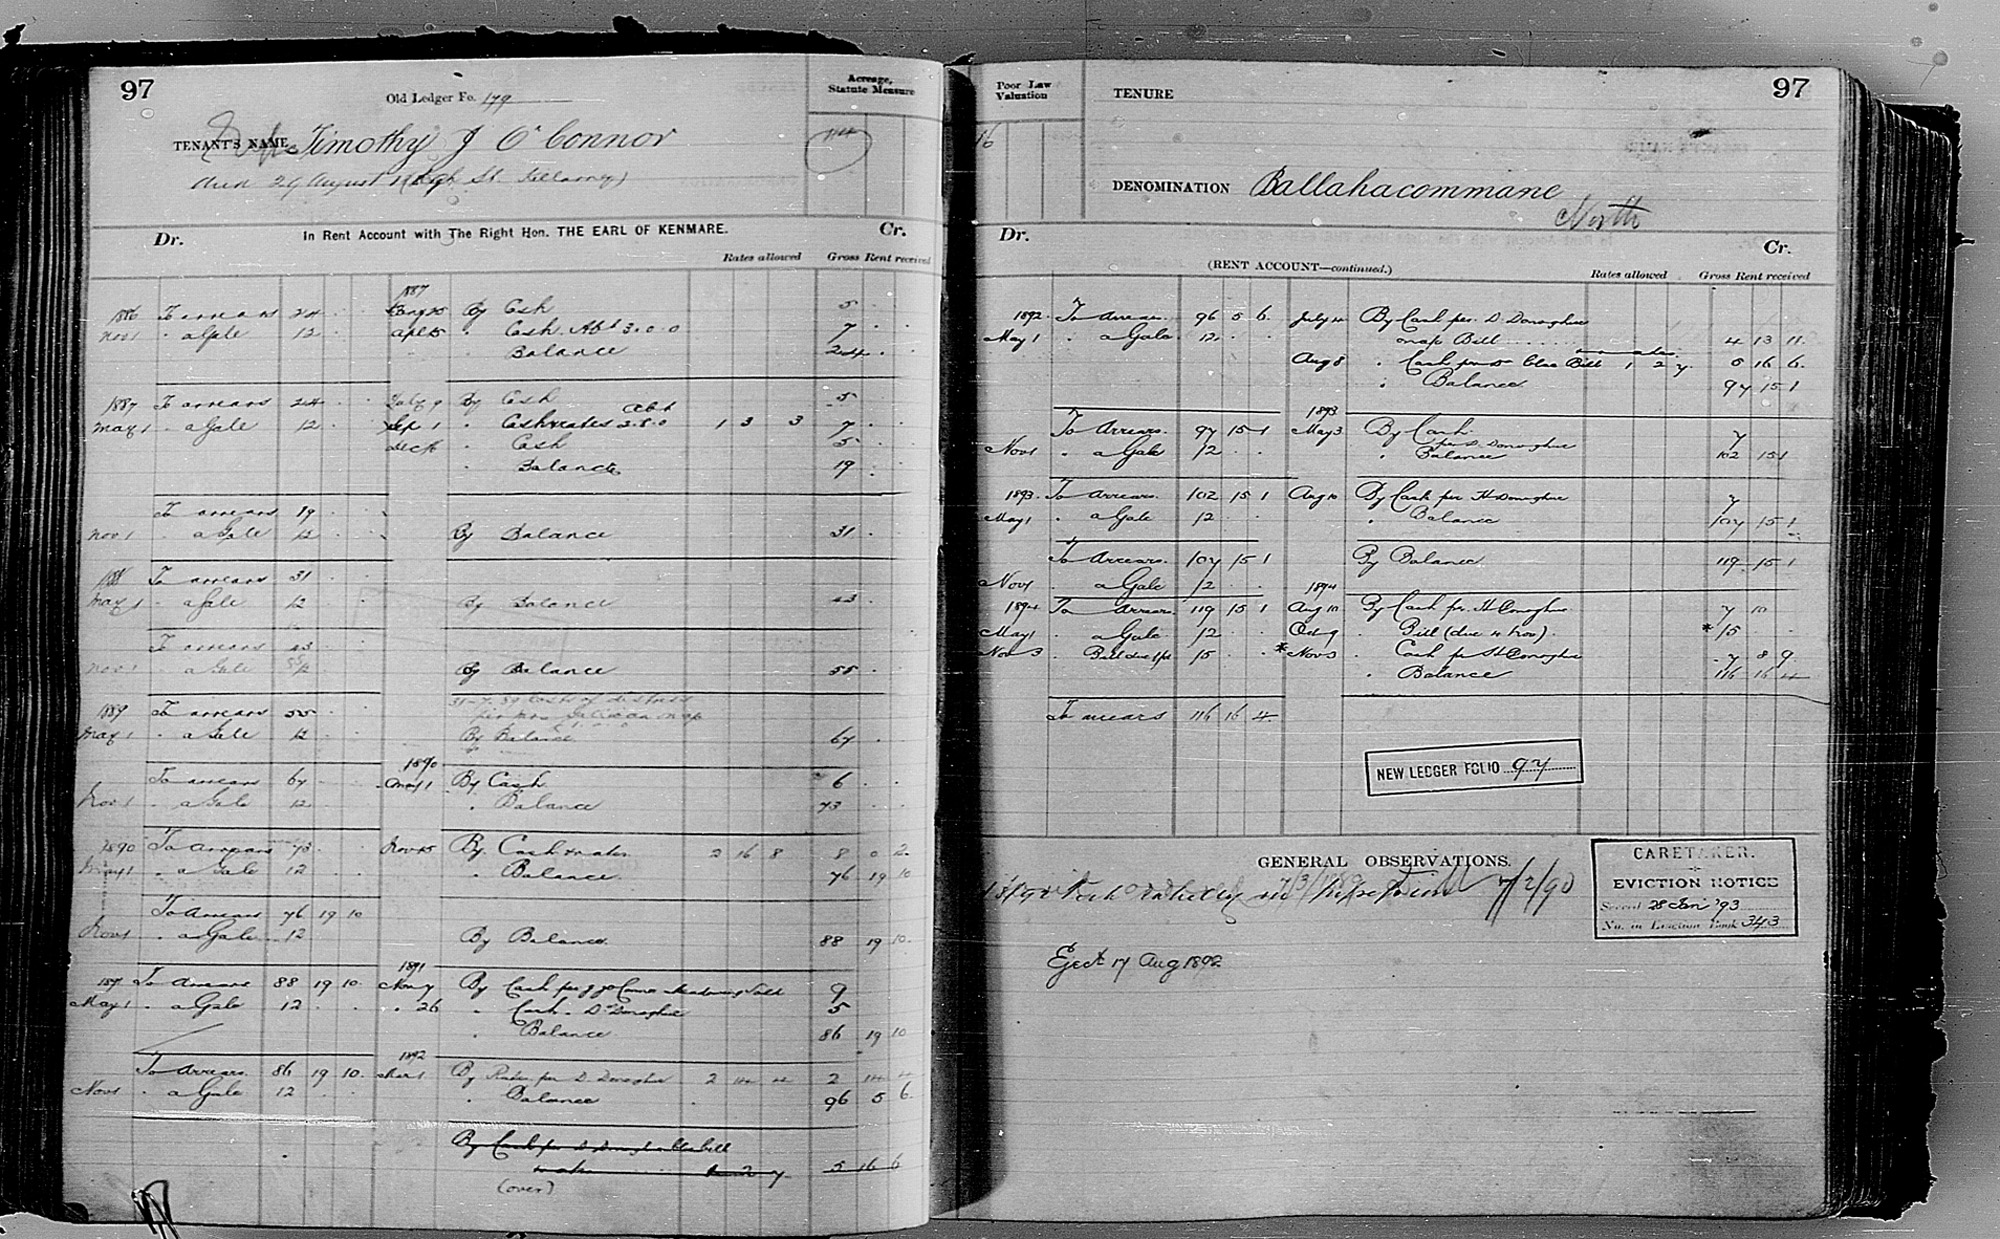 97
Old Ledger Fo. 179
Acreage,
Statute Measure
TENANT'S NAME Timothy J O'Connor
died 29 August High St. Killarney)
In Rent Account with The Right Hon. THE EARL OF KENMARE.
Dr. Cr.
Rates allowed Gross Rent received
1887
1886 To arrears 24 By Cash 5
Nov 1 " a Gale 12 " Cash Abt 3.0.0 7
Balance 24
1887 To arrears 24 July 9 By Cash 5
May 1 " a Gale 12 Sep 1 " Cash & rates 1 3 3 7
" Cash 5
" Balance 19
To arrears 19
Nov 1 " a Gale 12 By Balance 31
1888 To arrears 31
May 1 " a Gale 12 By Balance 43
To arrears 43
Nov 1 " a Gale 12 By Balance 55
1889 To arrears 55
May 1 " a Gale 12 By Balance 67
1890
To arrears 67 May 1 By Cash 6
Nov 1 " a Gale 12 " Balance 73
1890 To Arrears 73 Nov 15 By Cash & rates 2 16 8 8 0 2
May 1 " a Gale 12 " Balance 76 19 10
To Arrears 76 19 10
Nov 1 " a Gale 12 By Balance 88 19 10
1891
1891 To Arrears 88 19 10 Nov 7 By Cash per J J O'Connor Meadowing Sold 9
May 1 " a Gale 12 " 26 " Cash D Donoghue 5
" Balance 86 19 10
1892
To Arrears 86 19 10 Mar 1 By Rates per D. Donoghue 2 14 4 2 14 4
Nov 1 " a Gale 12 " Balance 96 5 6
By Cash per D Donoghue Clue bill
rates 1 2 7 5 16 6
(over)
Poor Law
Valuation
TENURE
97
16
DENOMINATION Ballahacommane
North
Dr. Cr.
(RENT ACCOUNT—continued.)
Rates allowed Gross Rent received
1892 To Arrears 96 5 6 July 4 By Cash per D. Donoghue
May 1 " a Gale 12 map Bill 4 13 11
Aug 8 " Cash 1 2 7 5 16 6
" Balance 97 15 1
1893
To Arrears 97 15 1 May 3 By Cash
per D. Donoghue 7
Nov 1 " a Gale 12 " Balance 102 15 1
1893 To Arrears 102 15 1 Aug 10 By Cash per H Donoghue 7
May 1 " a Gale 12 " Balance 107 15 1
To Arrears 107 15 1 By Balance 119 15 1
Nov 1 a Gale 12 1894
1894 To Arrears 119 15 1 Aug 10 By Cash per H Donoghue 7 10
May 1 a Gale 12 Oct 9 " Bill (due 4 Nov) * 15
Nov 3 Bill due 15 * Nov 3 " Cash per H Donoghue 7 8 9
" Balance 116 16 4
To arrears 116 16 4
NEW LEDGER FOLIO 97
GENERAL OBSERVATIONS.
7/2/90
CARETAKER.
EVICTION NOTICE
Served 28 Jan '93
No. in Eviction Book 343
Eject 17 Aug 1892